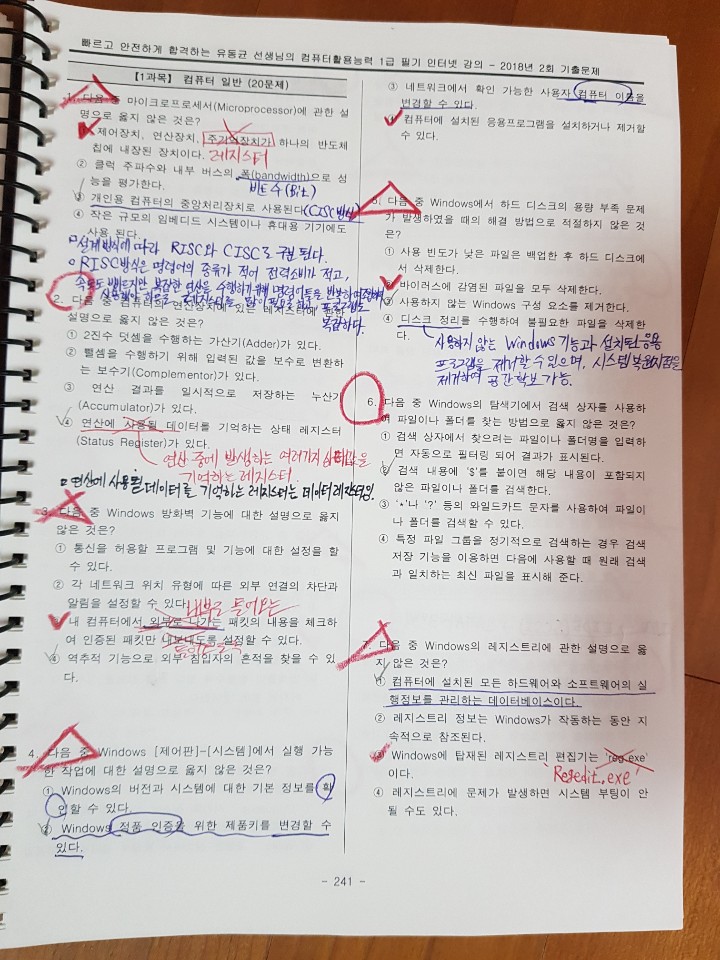 빠르고 안전하게 합격하는 유동균 선생님의 컴퓨터활용능력 1급 필기 인터넷 강의 - 2018년 2회 기출문제
【1과목】 컴퓨터 일반 (20문제)
1. 다음 중 마이크로프로세서(Microprocessor)에 관한 설
명으로 옳지 않은 것은?
제어장치, 연산장치, 주기억장치가 하나의 반도체
칩에 내장된 장치이다. 레지스터
② 클럭 주파수와 내부 버스의 폭(bandwidth)으로 성
능을 평가한다. 비트 수(Bit)
③ 개인용 컴퓨터의 중앙처리장치로 사용된다(CISC방식)
④ 작은 규모의 임베디드 시스템이나 휴대용 기기에도
사용 된다.
설계방식에 따라 RISC와 CISC로 구분 된다.
RISC방식은 명령어의 종류가 적어 전력소비가 적고,
속도도 빠르지만 복잡한 연산을 수행하기 위해 명령어들을 반복
레지스터를 많이 필요로하고, 프로그램도
복잡하다.
2. 다음 중 컴퓨터의 연산장치에 있는 레지스터에 관한
설명으로 옳지 않은 것은?
① 2진수 덧셈을 수행하는 가산기(Adder)가 있다.
② 뺄셈을 수행하기 위해 입력된 값을 보수로 변환하
는 보수기(Complementor)가 있다.
③ 연산 결과를 일시적으로 저장하는 누산기
(Accumulator)가 있다.
④ 연산에 사용될 데이터를 기억하는 상태 레지스터
(Status Register)가 있다.
연산 중에 발생하는 여러가지 상태값을
기억하는 레지스터
연산에 사용될 데이터를 기억하는 레지스터는 데이터 레지스터임.
3. 다음 중 Windows 방화벽 기능에 대한 설명으로 옳지
않은 것은?
① 통신을 허용할 프로그램 및 기능에 대한 설정을 할
수 있다.
② 각 네트워크 위치 유형에 따른 외부 연결의 차단과
알림을 설정할 수 있다.
내부로 들어오는
내 컴퓨터에서 외부로 나가는 패킷의 내용을 체크하
여 인증된 패킷만 내보내도록 설정할 수 있다.
④ 역추적 기능으로 외부 침입자의 흔적을 찾을 수 있
다.
4. 다음 중 Windows [제어판]-[시스템]에서 실행 가능
한 작업에 대한 설명으로 옳지 않은 것은?
① Windows의 버전과 시스템에 대한 기본 정보를 확
인할 수 있다.
② Windows 정품 인증을 위한 제품키를 변경할 수
있다.
③ 네트워크에서 확인 가능한 사용자 컴퓨터 이름을
변경할 수 있다.
컴퓨터에 설치된 응용프로그램을 설치하거나 제거할
수 있다.
5. 다음 중 Windows에서 하드 디스크의 용량 부족 문제
가 발생하였을 때의 해결 방법으로 적절하지 않은 것
은?
① 사용 빈도가 낮은 파일은 백업한 후 하드 디스크에
서 삭제한다.
바이러스에 감염된 파일을 모두 삭제한다.
③ 사용하지 않는 Windows 구성 요소를 제거한다.
④ 디스크 정리를 수행하여 불필요한 파일을 삭제한
다.
사용하지 않는 Windows 기능과 설치된 응용
프로그램을 제거할 수 있으며, 시스템 복원지점을
제거하여 공간확보 가능.
6. 다음 중 Windows의 탐색기에서 검색 상자를 사용하
여 파일이나 폴더를 찾는 방법으로 옳지 않은 것은?
① 검색 상자에서 찾으려는 파일이나 폴더명을 입력하
면 자동으로 필터링 되어 결과가 표시된다.
② 검색 내용에 '$'를 붙이면 해당 내용이 포함되지
않은 파일이나 폴더를 검색한다.
③ '*'나 '?' 등의 와일드카드 문자를 사용하여 파일이
나 폴더를 검색할 수 있다.
④ 특정 파일 그룹을 정기적으로 검색하는 경우 검색
저장 기능을 이용하면 다음에 사용할 때 원래 검색
과 일치하는 최신 파일을 표시해 준다.
7. 다음 중 Windows의 레지스트리에 관한 설명으로 옳
지 않은 것은?
① 컴퓨터에 설치된 모든 하드웨어와 소프트웨어의 실
행정보를 관리하는 데이터베이스이다.
② 레지스트리 정보는 Windows가 작동하는 동안 지
속적으로 참조된다.
③ Windows에 탑재된 레지스트리 편집기는 'reg.exe'
이다. 'Regedit.exe'
④ 레지스트리에 문제가 발생하면 시스템 부팅이 안
될 수도 있다.
- 241 -